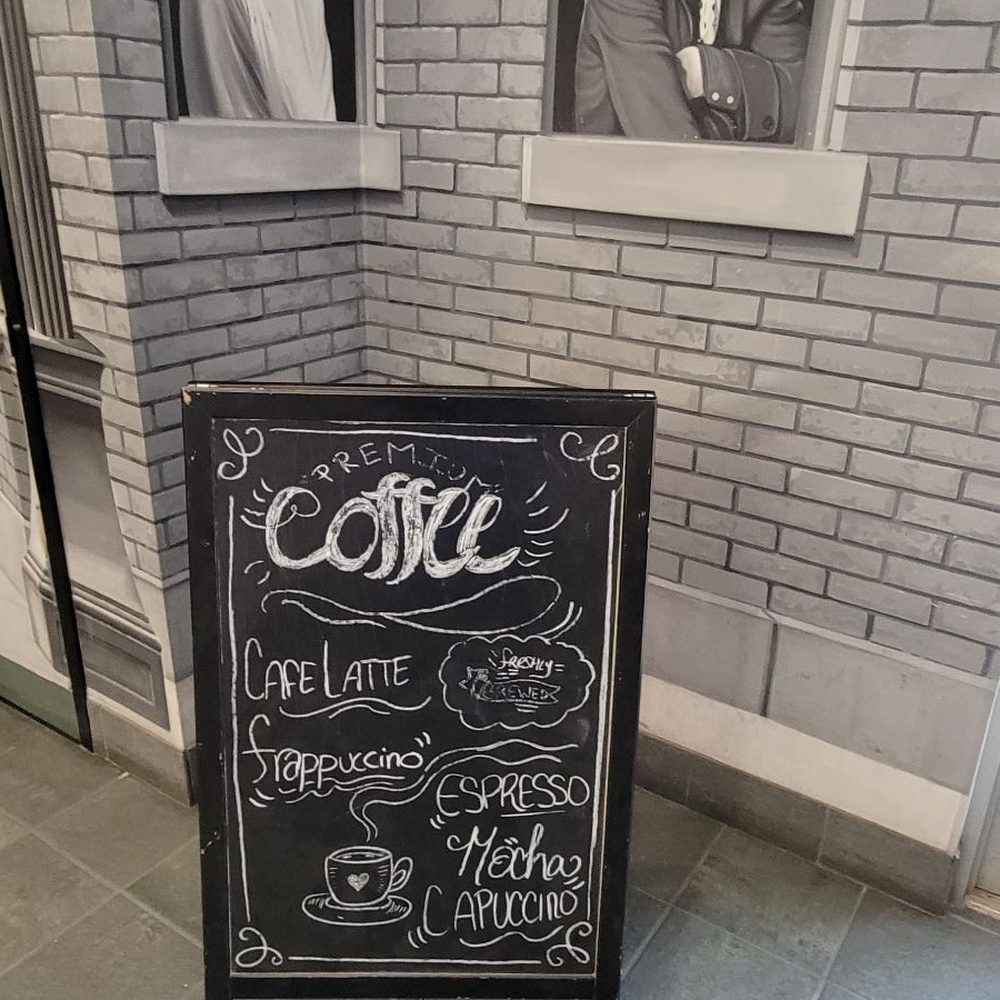 PREMIUM
Coffee
CAFE LATTE
freshly
BREWED
frappuccino
ESPRESSO
Mocha
CAPUCCINO